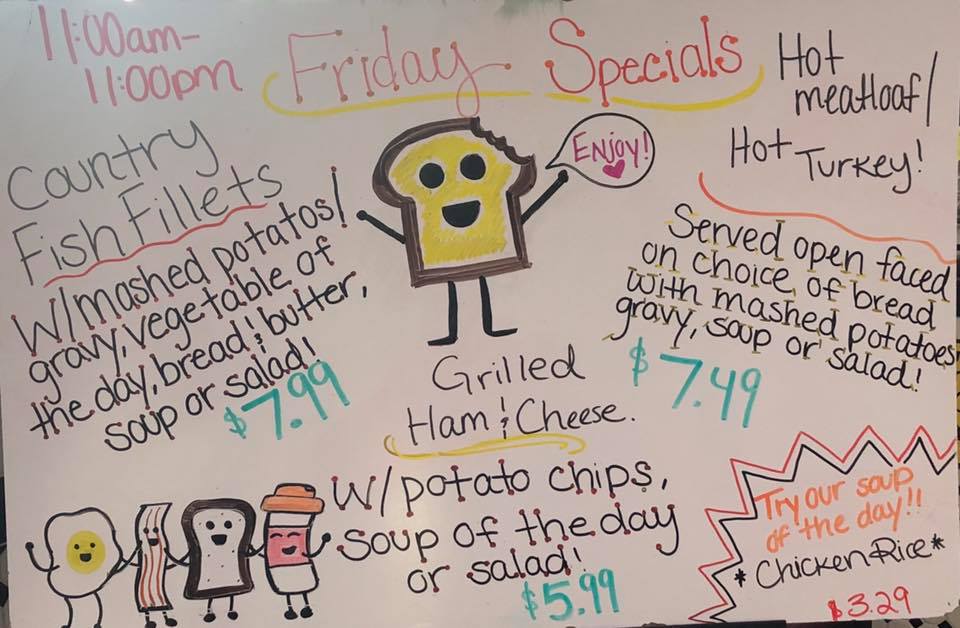 11:00am-
11:00pm
Friday Specials
Country
Fish Fillets
w/mashed potatos/
gravy, vegetable of
the day, bread & butter,
soup or salad!
$7.99
Enjoy!
Grilled
Ham & Cheese.
w/potato chips,
soup of the day
or salad!
$5.99
Hot
meatloaf/
Hot Turkey!
Served open faced
on choice of bread
with mashed potatoes
gravy, soup or salad!
$7.49
Try our soup
of the day!!
*Chicken Rice*
$3.29